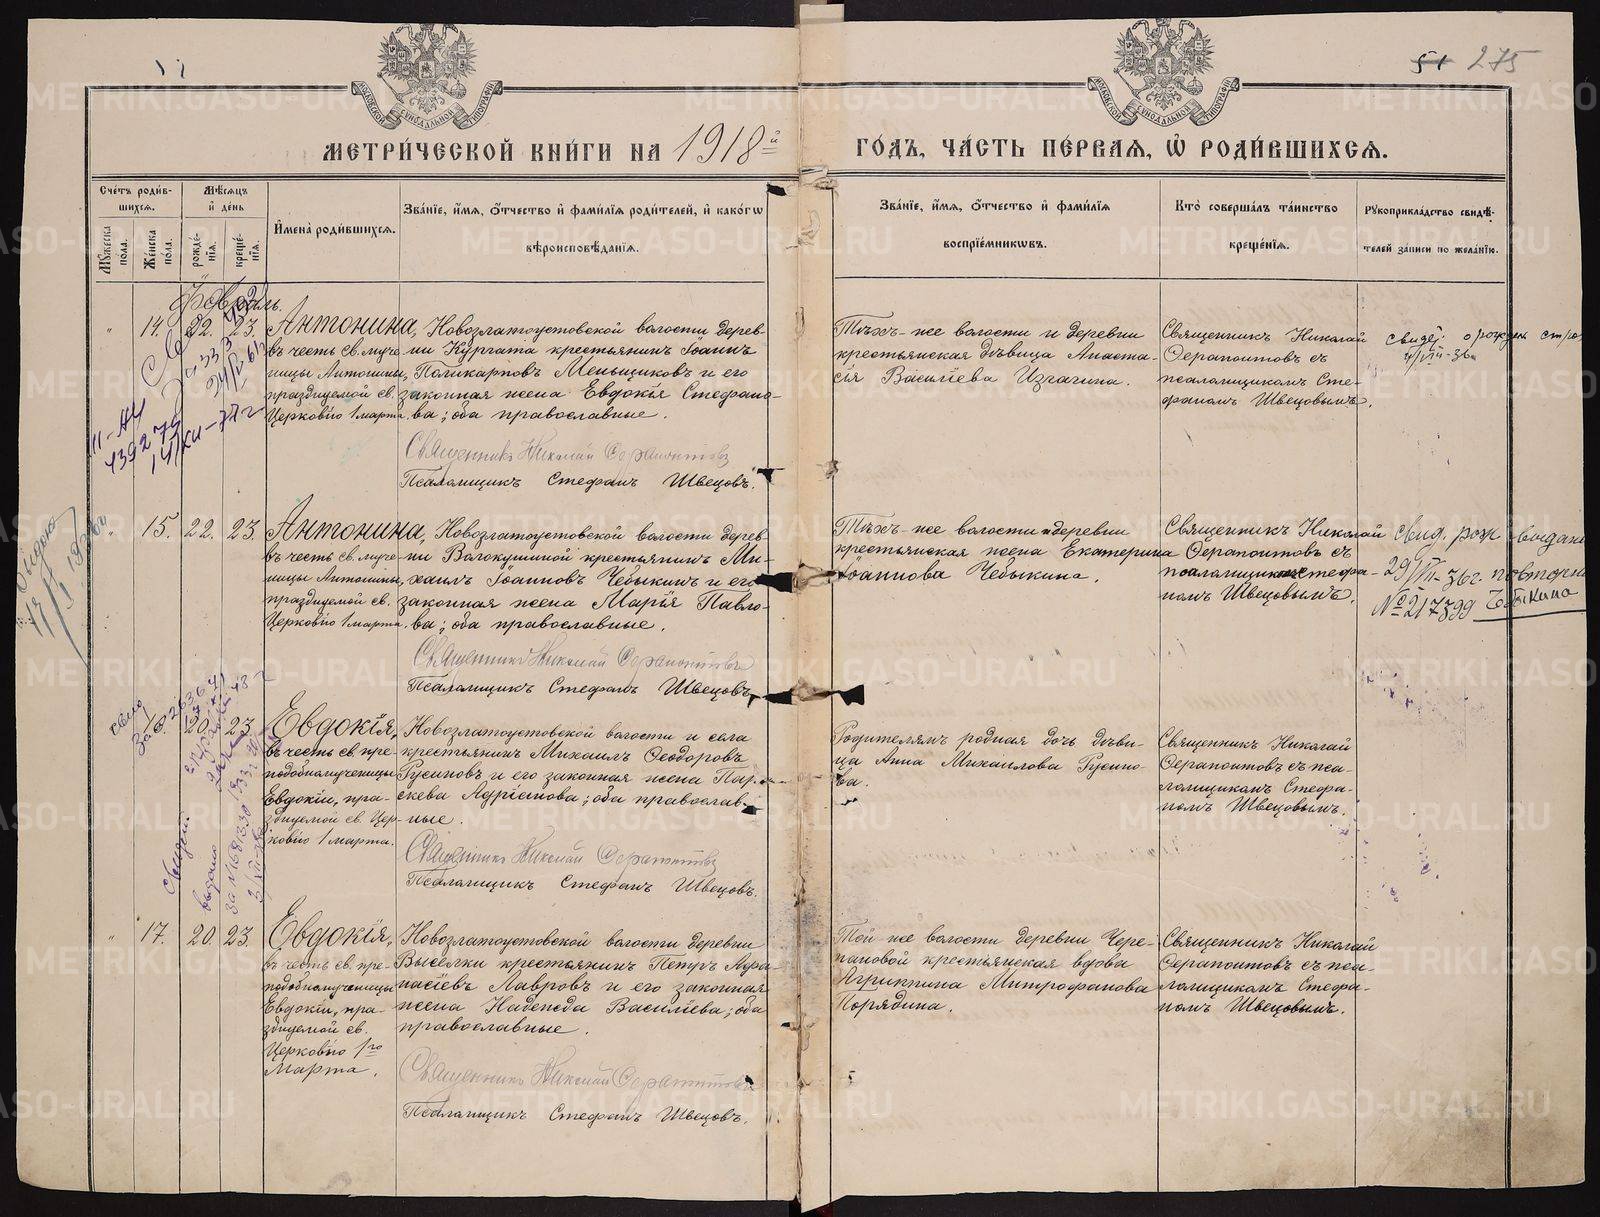 51 275
МЕТРИ́ЧЕСКОЙ КНИ́ГИ НА 1918й ГО́ДЪ, ЧА́СТЬ ПЕ́РВАЯ, Ѡ РОДИ́ВШИХСЯ.
МОСКОВСКОЙ СѴНОДАЛЬНОЙ ТИПОГРАФІИ
МОСКОВСКОЙ СѴНОДАЛЬНОЙ ТИПОГРАФІИ
Сче́тъ роди́в-
шихся.
Му́жеска по́ла.
Же́нска по́ла.
Мѣ́сяцъ
и҆ де́нь
рожде́-
нїѧ.
креще́-
нїѧ.
И҆мена̀ роди́вшихся.
Зва́нїе, и҆́мѧ, ѻ҆́тчество и҆ фами́лїѧ роди́телей, и҆ како́гѡ
вѣроисповѣ́данїѧ.
Зва́нїе, и҆́мѧ, ѻ҆́тчество и҆ фами́лїѧ
воспрїе́мникѡвъ.
Кто̀ соверша́лъ та́инство
креще́нїѧ.
Рꙋкоприкла́дство свидѣ́-
телей за́писи по жела́нїю.
Февраль.
" 14. 22. 23.
Антонина,
въ честь св. муче-
ницы Антонины,
празднуемой св.
Церковію 1 марта.
Новозлатоустовской волости дерев-
ни Кургата крестьянинъ Іоаннъ
Поликарповъ Меньщиковъ и его
законная жена Евдокія Стефано-
ва; оба православные.
Священникъ Николай Серапонтовъ
Псаломщикъ Стефанъ Швецовъ.
Тѣхъ-же волости и деревни
крестьянская дѣвица Анаста-
сія Василіева Изгагина.
Священникъ Николай
Ѳерапонтовъ съ
псаломщикомъ Сте-
фаномъ Швецовымъ.
свидѣт. о рожден
" 15. 22. 23.
Антонина,
въ честь св. муче-
ницы Антонины,
празднуемой св.
Церковію 1 марта.
Новозлатоустовской волости дерев-
ни Волокушиной крестьянинъ Ми-
хаилъ Іоанновъ Чебыкинъ и его
законная жена Марія Павло-
ва; оба православные.
Священникъ Николай Серапонтовъ
Псаломщикъ Стефанъ Швецовъ.
Тѣхъ-же волости и деревни
крестьянская жена Екатерина
Іоаннова Чебыкина.
Священникъ Николай
Ѳерапонтовъ съ
псаломщикомъ Стефа-
номъ Швецовымъ.
Свид. рож выдано
29/VII-36г. повторно
№ 217399 Чебыкина
16. 20. 23.
Евдокія,
въ честь св. пре-
подобномученицы
Евдокіи, пра-
зднуемой св. Цер-
ковію 1 марта.
Новозлатоустовской волости и села
крестьянинъ Михаилъ Ѳеодоровъ
Русиновъ и его законная жена Пар-
скева Адріанова; оба православ-
ные.
Священникъ Николай Серапонтовъ
Псаломщикъ Стефанъ Швецовъ.
Родителямъ родная дочь дѣви-
ца Анна Михаилова Русино-
ва.
Священникъ Николай
Ѳерапонтовъ съ пса-
ломщикомъ Стефа-
номъ Швецовымъ.
" 17. 20. 23.
Евдокія,
въ честь св. пре-
подобномученицы
Евдокіи, пра-
зднуемой св.
Церковію 1го
Марта.
Новозлатоустовской волости деревни
Выселки крестьянинъ Петръ Аѳа-
насіевъ Лавровъ и его законная
жена Надежда Василіева; оба
православные.
Священникъ Николай Серапонтовъ
Псаломщикъ Стефанъ Швецовъ.
Той-же волости деревни Чере-
пановой крестьянская вдова
Агриппина Митрофанова
Порядина.
Священникъ Николай
Ѳерапонтовъ съ пса-
ломщикомъ Стефа-
номъ Швецовымъ.
METRIKI.GASO-URAL.RU